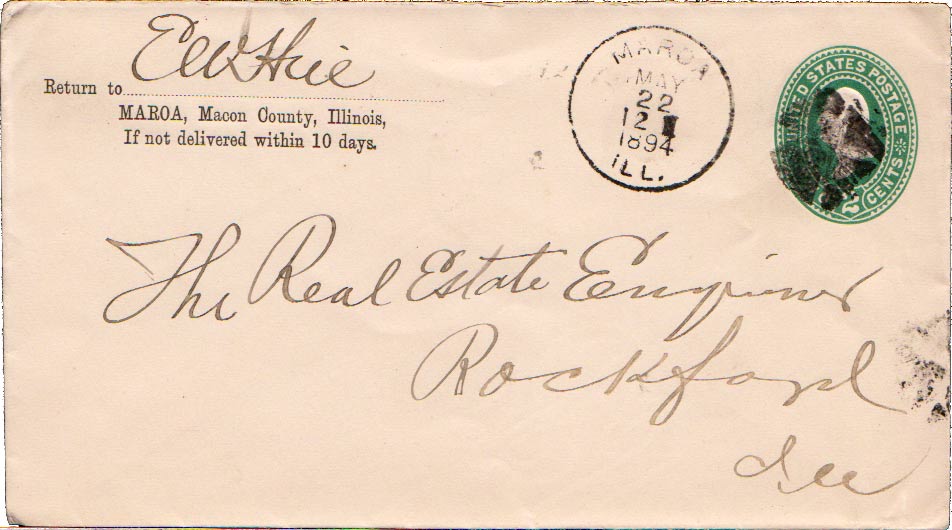 Return to E W Hiie
MAROA, Macon County, Illinois,
If not delivered within 10 days.
MAROA
MAY
22
12
1894
ILL.
UNITED STATES POSTAGE
2 CENTS
The Real Estate Enquirer
Rockford
Ill